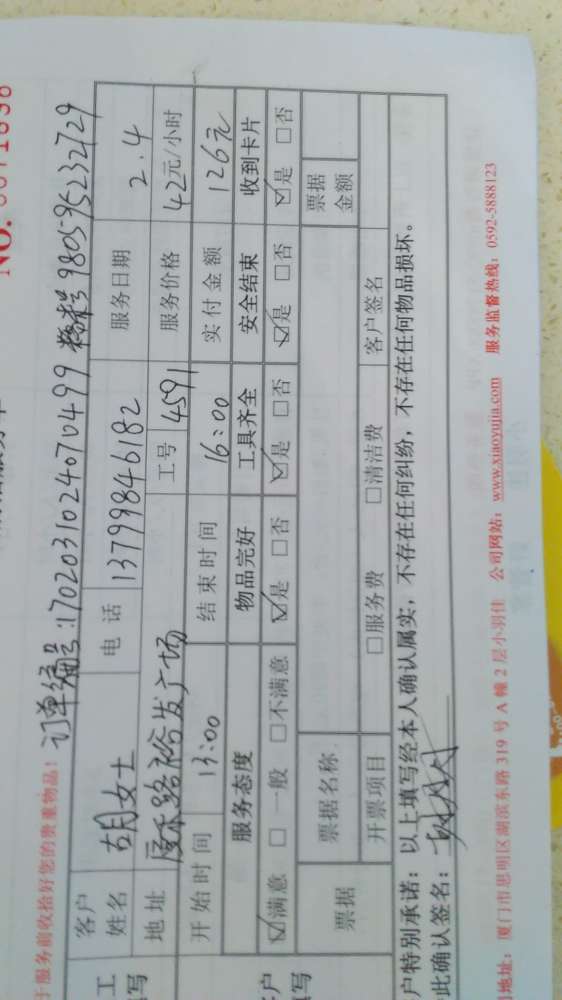 NO.
于服务前收拾好您的贵重物品!
订单编号:170203102407049999 糯米号980595232729
客户姓名 胡女士 电话 13799846182 服务日期 2.4
地址 厦禾路裕发广场 工号 4591 服务价格 42元/小时
开始时间 13:00 结束时间 16:00 实付金额 126元
服务态度 物品完好 工具齐全 安全结束 收到卡片
☑满意 □一般 □不满意 ☑是 □否 ☑是 □否 ☑是 □否 ☑是 □否
票据 票据名称 票据金额
开票项目 □服务费 □清洁费 客户签名
户特别承诺:以上填写经本人确认属实,不存在任何纠纷,不存在任何物品损坏。
此确认签名:
地址:厦门市思明区湖滨东路 319 号 A 幢 2 层小羽佳 公司网站:www.xiaoyujia.com 服务监督热线:0592-5888123